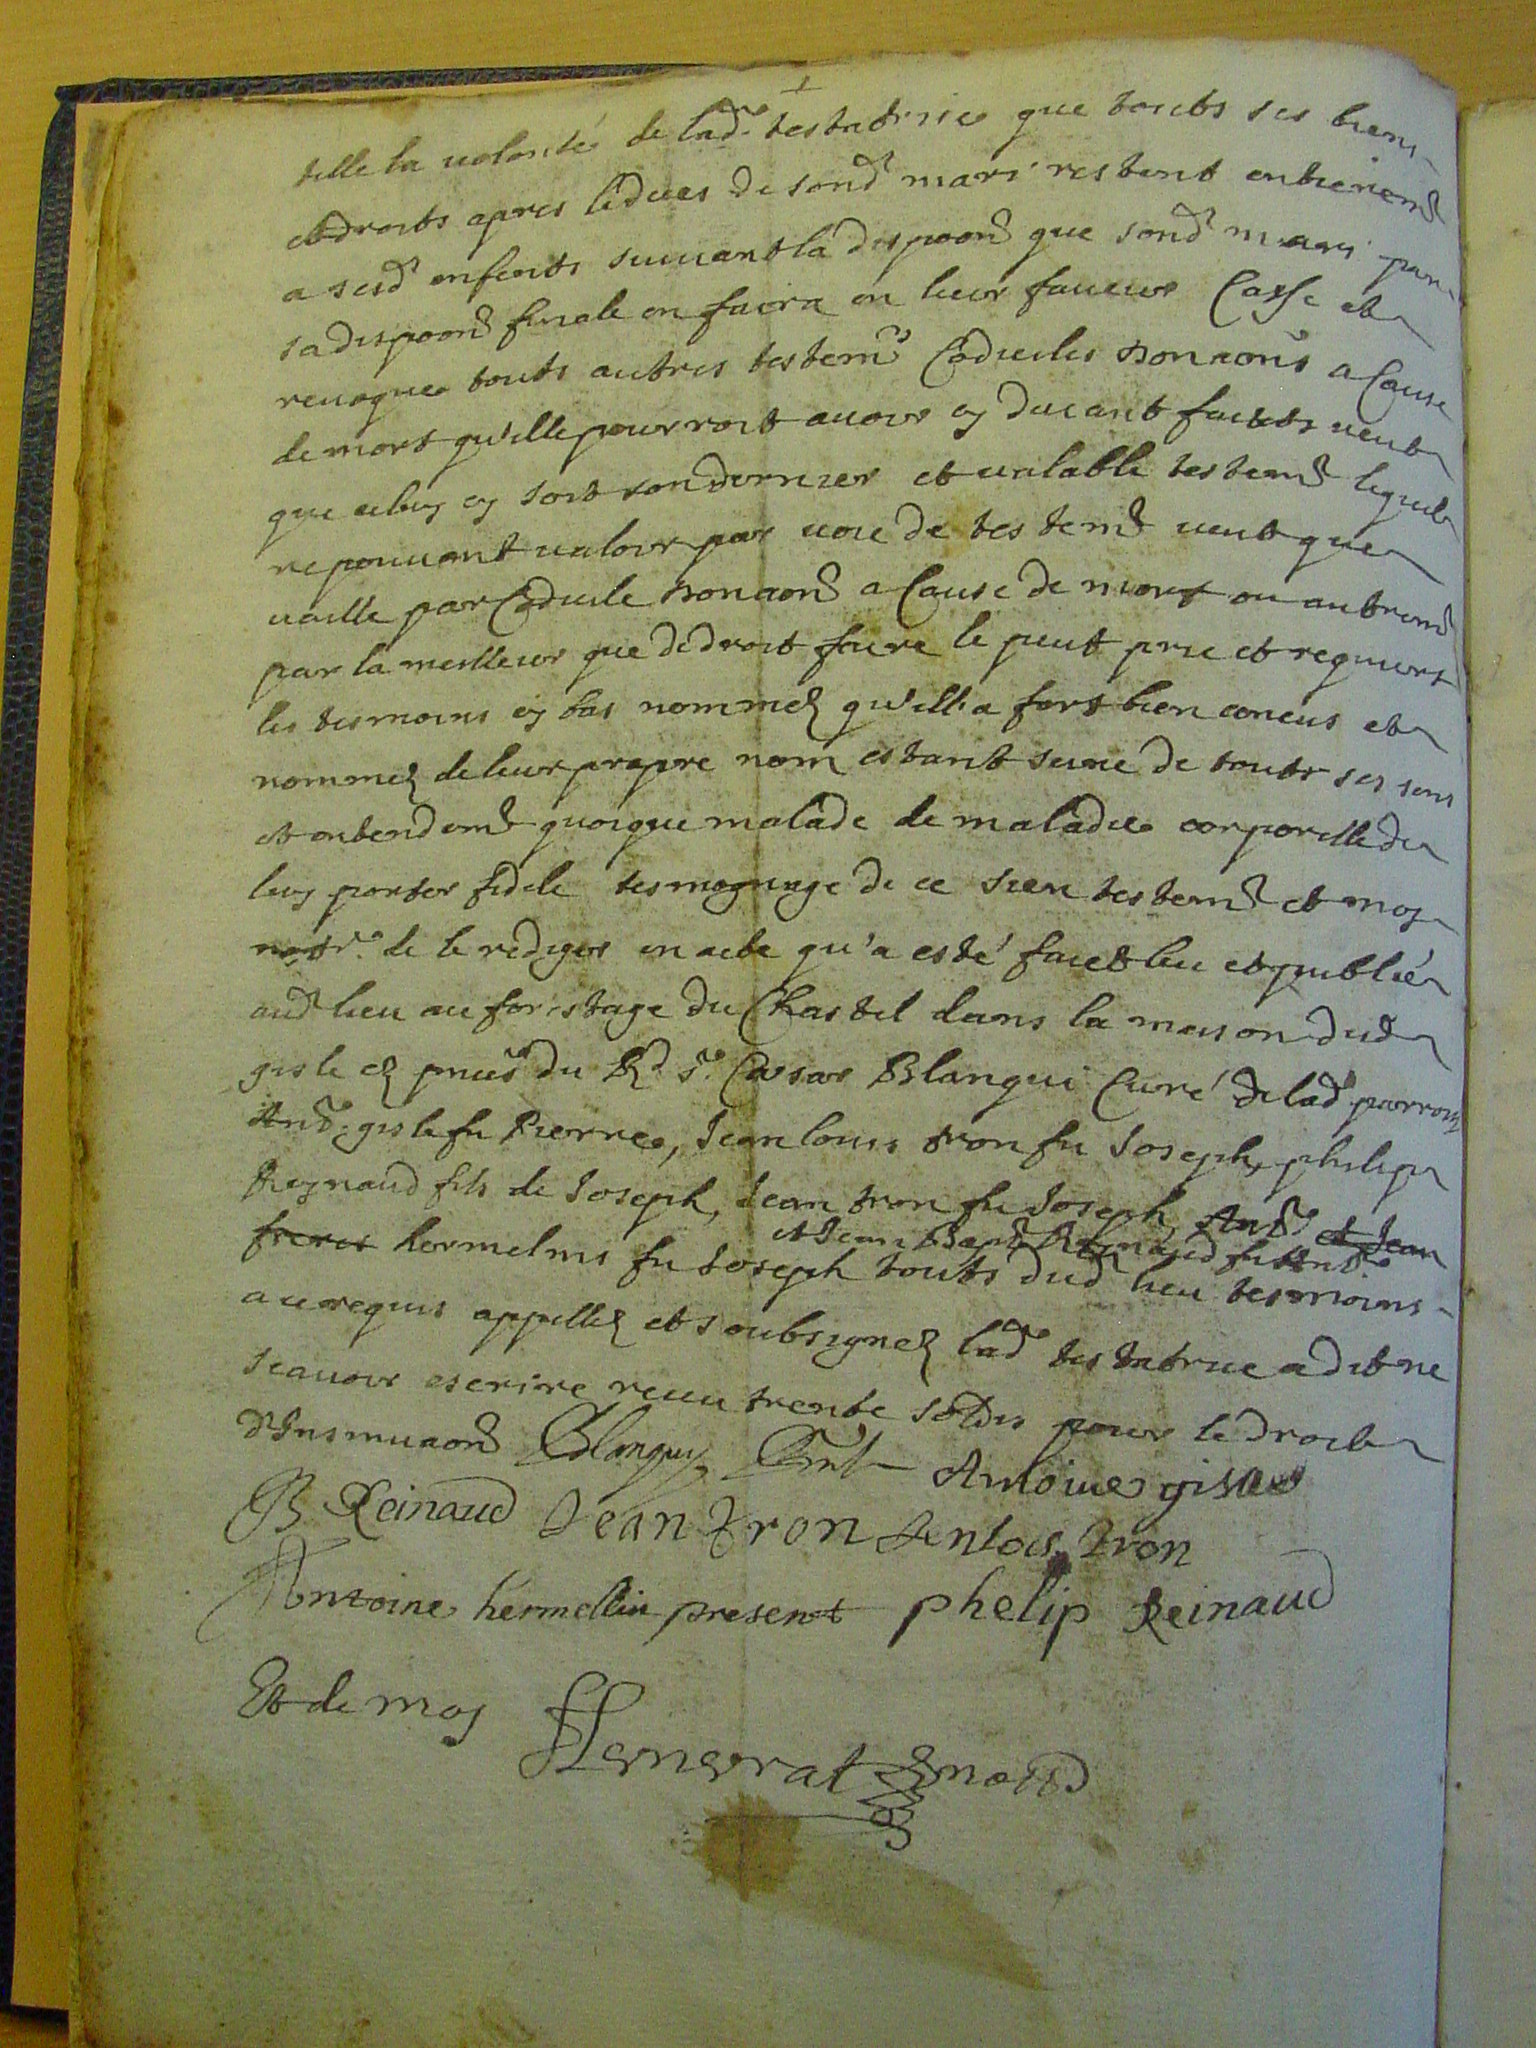 telle la volonté de lad.e testatrice que touts ses biens
et droits apres le deces de sond mari restent entierem.t
a sesd enfents suivant la dispoon que sond mari par
sa dispoon finale en faira en leur faveur Casse et
revoque touts autres testem.ts Codiciles donnaons a Cause
de mort qu'elle pourroit avoir cy devant faicts veut
que celuy cy soit son dernier et valable testem.t lequel
ne pouvant valoir par voie de testem.t veut que
vaille par Codicile donnaon a Cause de mort ou autrem.t
par la meilleur que de droit faire le peut prie et requiert
les tesmoins cy bas nommez qu'elle a fort bien coneus et
nommez de leur propre nom estant seine de touts ses sens
et entendem.t quoique malade de maladie corporelle de
luy porter fidele tesmognage de ce sien testem.t et moy
not.re de le rediger en acte qu'a esté faict leu et publié
aud lieu au forestage du Chastel dans la maison dud
gisle ez pnces du R.d s.r Cæsar Blanqui Curé de lad parrois
Ant.e gisle fu Pierre, Jean louis tron fu Joseph, philip
Reynaud fils de Joseph, Jean tron fu Joseph, Ant.e et Jean
et Jean Bapt.e Reynaud fu Ant.e
freres hermelins fu Joseph touts dud lieu tesmoins
a ce requis appellez et soubsignez lad.e testatrice a dit ne
scavoir escrire receu trente soldis pour le droit
d'Insinuaon Blanquy Curé Antoine gisle
B Reinaud Jean Tron Jenlois Tron
Antoine hermellin present phelip Reinaud
Et de moy